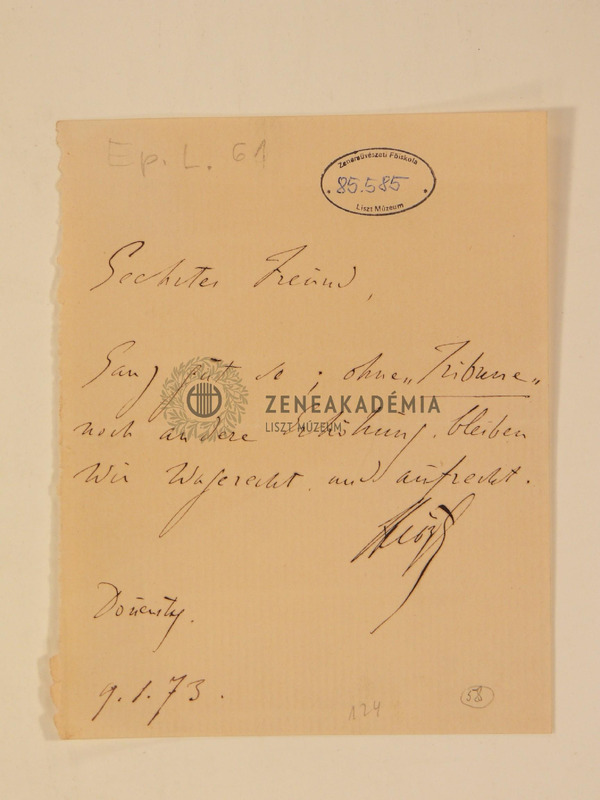 Ep. L. 61
Zeneművészeti Főiskola
85.585
Liszt Múzeum
Geehrter Freund,
Ganz gut so; ohne „Tribune„
ZENEAKADÉMIA
LISZT MÚZEUM
noch andere Erhöhung, bleiben
Wir Wagerecht und aufrecht.
FLiszt
Donnerstag.
9.1.73.
124
58